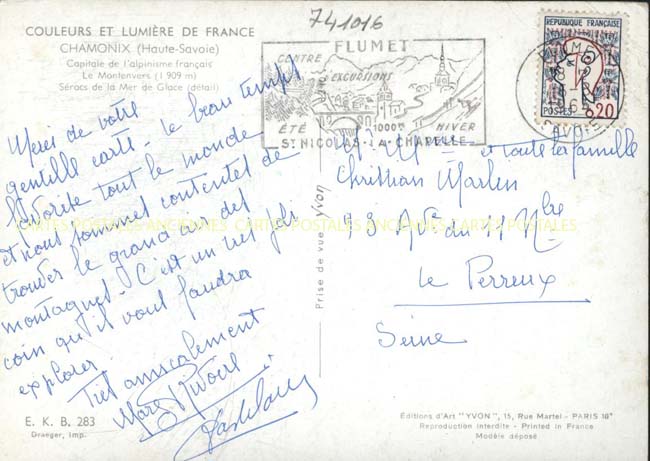 741016
COULEURS ET LUMIÈRE DE FRANCE
CHAMONIX (Haute-Savoie)
Capitale de l'alpinisme français
Le Montenvers (1 909 m)
Séracs de la Mer de Glace (détail)
FLUMET
CENTRE
EXCURSIONS
1000m
ÉTÉ
HIVER
ST NICOLAS-LA-CHAPELLE
REPUBLIQUE FRANÇAISE
POSTES
0,20
Merci de votre
gentille carte - le beau temps
favorise tout le monde
et nous sommes contents de
trouver le grand air des
montagnes - C'est un très joli
coin qu'il vous faudra
explorer
Très amicalement
Prise de vue Yvon
et toute la famille
Christian Marlin
93 Ave du 11 Nbre
Le Perreux
Seine
CARTES POSTALES ANCIENNES CARTES POSTALES ANCIENNES CARTES POSTALES
E. K. B. 283
Draeger, imp.
Éditions d'Art "YVON", 15, Rue Martel - PARIS 10e
Reproduction interdite - Printed in France
Modèle déposé